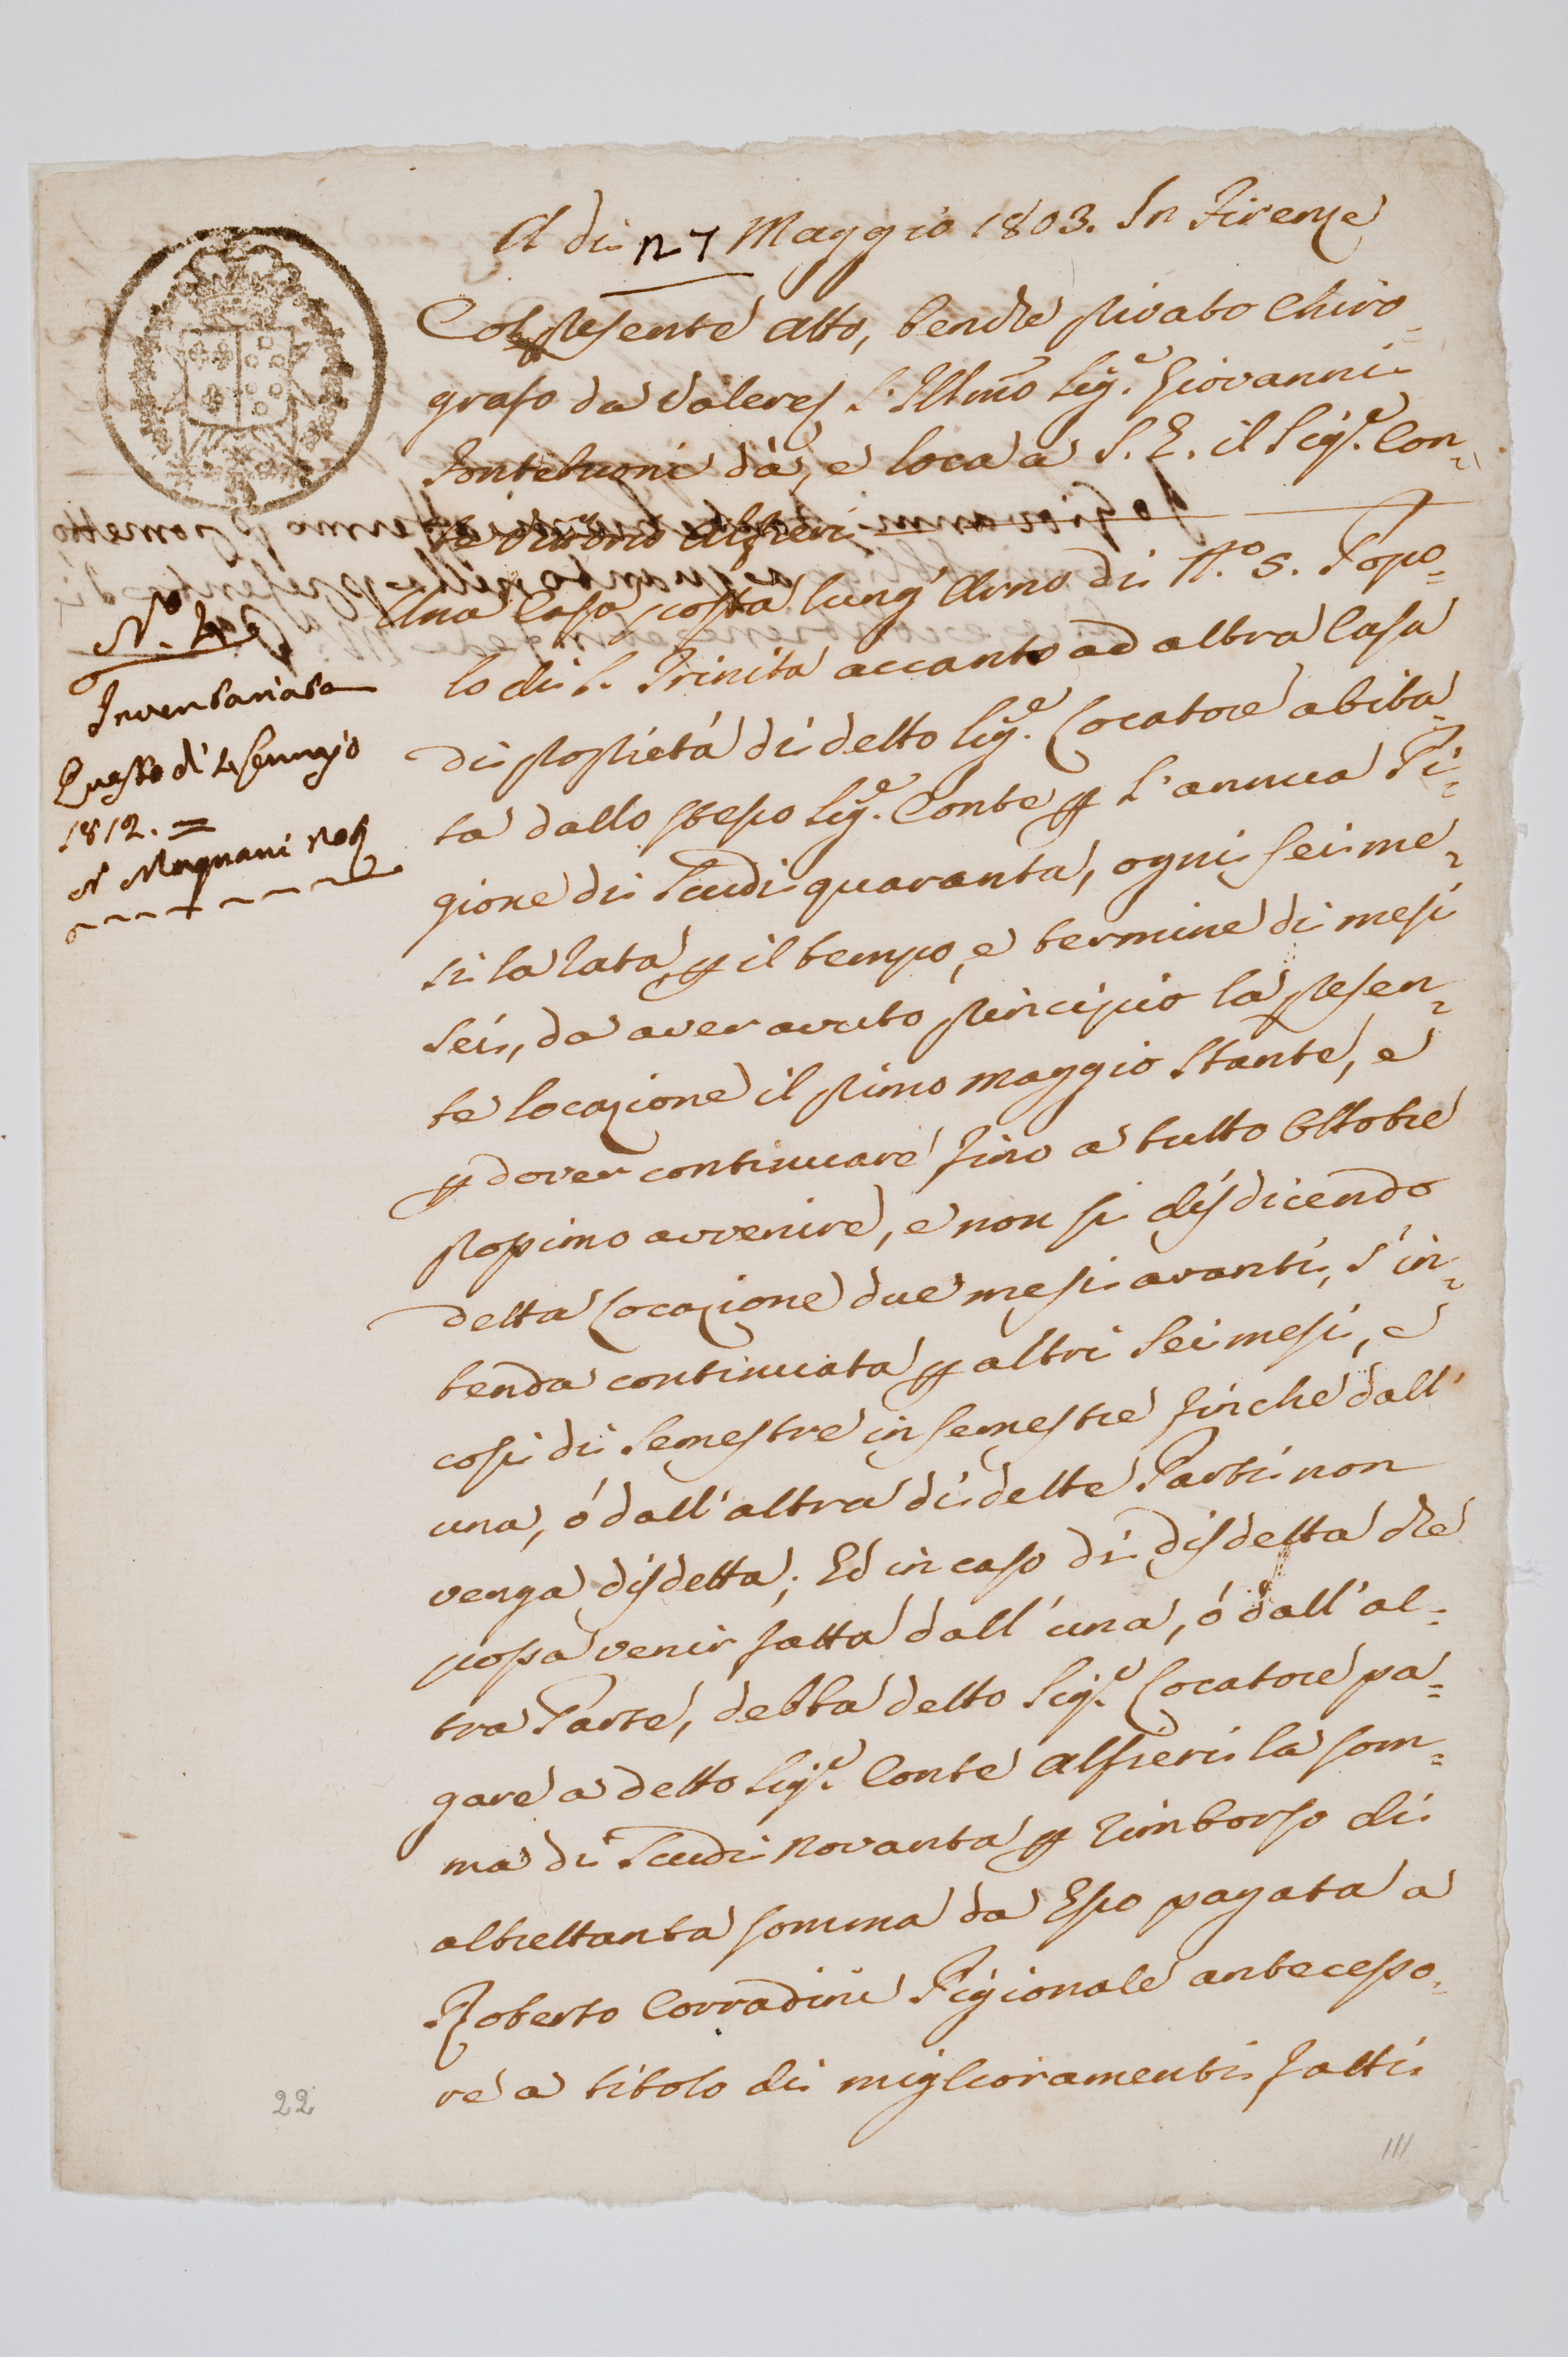 A di 27 Maggio 1803. In Firenze
Col presente Atto, benche privato Chiro=
grafo da valere &c l'Illmo Sig.e Giovanni
Fontebuoni dà, e loca a S. E. il Sig.e Con=
te Vittorio Alfieri
Una Casa posta lung'Arno di N.o 5. Popo=
lo di S. Trinita accanto ad altra Casa
di proprietà di detto Sig.e Locatore abita=
ta dallo stesso Sig.e Conte p l'annua Pi=
gione di Scudi quaranta, ogni sei me=
si la rata, p il tempo, e termine di mesi
Sei, da aver avuto principio la presen=
te locazione il primo Maggio Stante, e
p dover continuare fino a tutto Ottobre
prossimo avvenire, e non si disdicendo
detta Locazione due mesi avanti, s'in=
tenda continuata p altri Sei mesi, e
così di Semestre in Semestre finche dall'
una, ò dall'altra di dette Parti non
venga disdetta; Ed in caso di disdetta che
possa venir fatta dall'una, ò dall'al=
tra Parte, debba detto Sig.e Locatore pa=
gare a detto Sig.e Conte Alfieri la som=
ma di Scudi Novanta p rimborso di
altrettanta somma da Esso pagata a
Roberto Corradini Pigionale antecesso=
re a titolo di miglioramenti fatti
N.o
Inventariata
Questo dì 4 Gennajo
1812. =
N Magnani Not
22
111